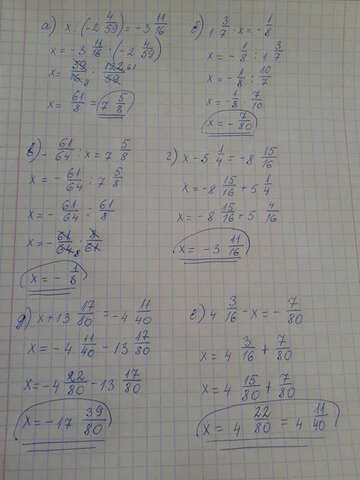 а) x · (-2 4/59) = -3 11/16
x = -3 11/16 : (-2 4/59)
x = 61/8 = 7 5/8
б) 1 3/7 · x = -1/8
x = -1/8 : 1 3/7
x = -1/8 : 10/7
x = -1/8 · 7/10
x = -7/80
в) -61/64 : x = 7 5/8
x = -61/64 : 7 5/8
x = -61/64 : 61/8
x = -61/64 · 8/61
x = -1/8
г) x - 5 1/4 = -8 15/16
x = -8 15/16 + 5 1/4
x = -8 15/16 + 5 4/16
x = -3 11/16
д) x + 13 17/80 = -4 11/40
x = -4 11/40 - 13 17/80
x = -4 22/80 - 13 17/80
x = -17 39/80
е) 4 3/16 - x = -7/80
x = 4 3/16 + 7/80
x = 4 15/80 + 7/80
x = 4 22/80 = 4 11/40